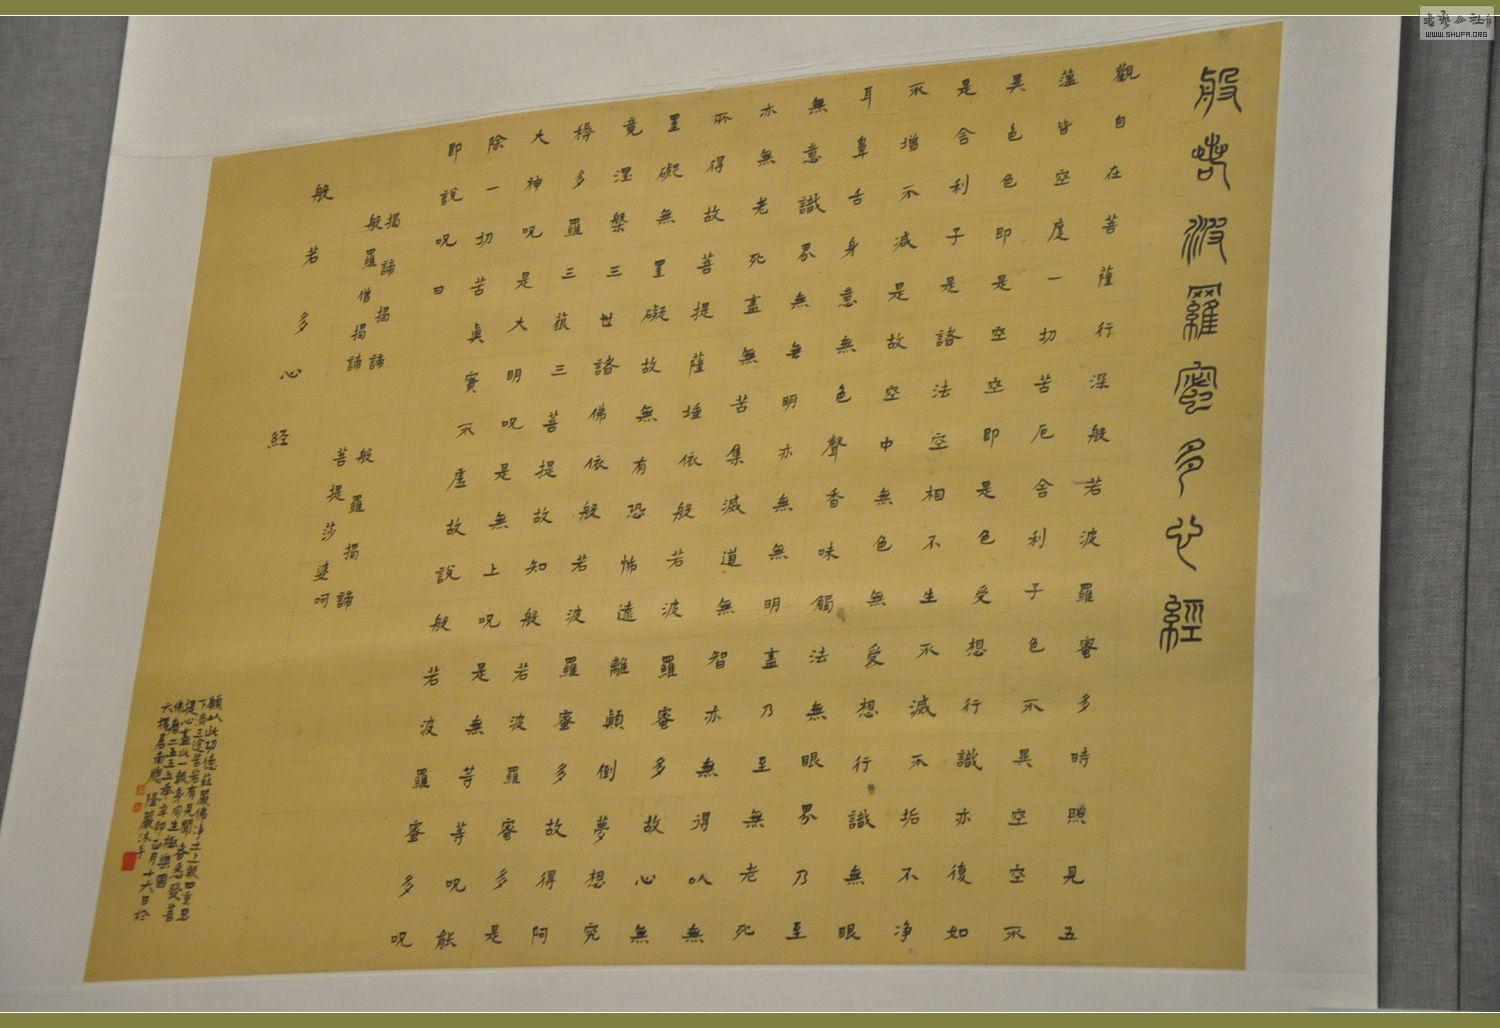 般若波羅蜜多心經
觀自在菩薩行深般若波羅蜜多時照見五
蘊皆空度一切苦厄舍利子色不異空空不
異色色即是空空即是色受想行識亦復如
是舍利子是諸法空相不生不滅不垢不净
不增不減是故空中無色無受想行識無眼
耳鼻舌身意無色聲香味觸法無眼界乃至
無意識界無無明亦無無明盡乃至無老死
亦無老死盡無苦集滅道無智亦無得以無
所得故菩提薩埵依般若波羅蜜多故心無
罣礙無罣礙故無有恐怖遠離顛倒夢想究
竟涅槃三世諸佛依般若波羅蜜多故得阿
耨多羅三藐三菩提故知般若波羅蜜多是
大神呪是大明呪是無上呪是無等等呪能
除一切苦真實不虛故說般若波羅蜜多呪
即說呪曰
揭諦揭諦 般羅揭諦
般羅僧揭諦 菩提莎婆呵
般若多心経
願以此功德莊嚴佛净土上報四重恩
下濟三塗苦若有見聞者悉發菩
提心盡此一報身同生極樂國
佛曆二五五五年辛卯正月十六日於
沐手
WWW.SHUFA.ORG